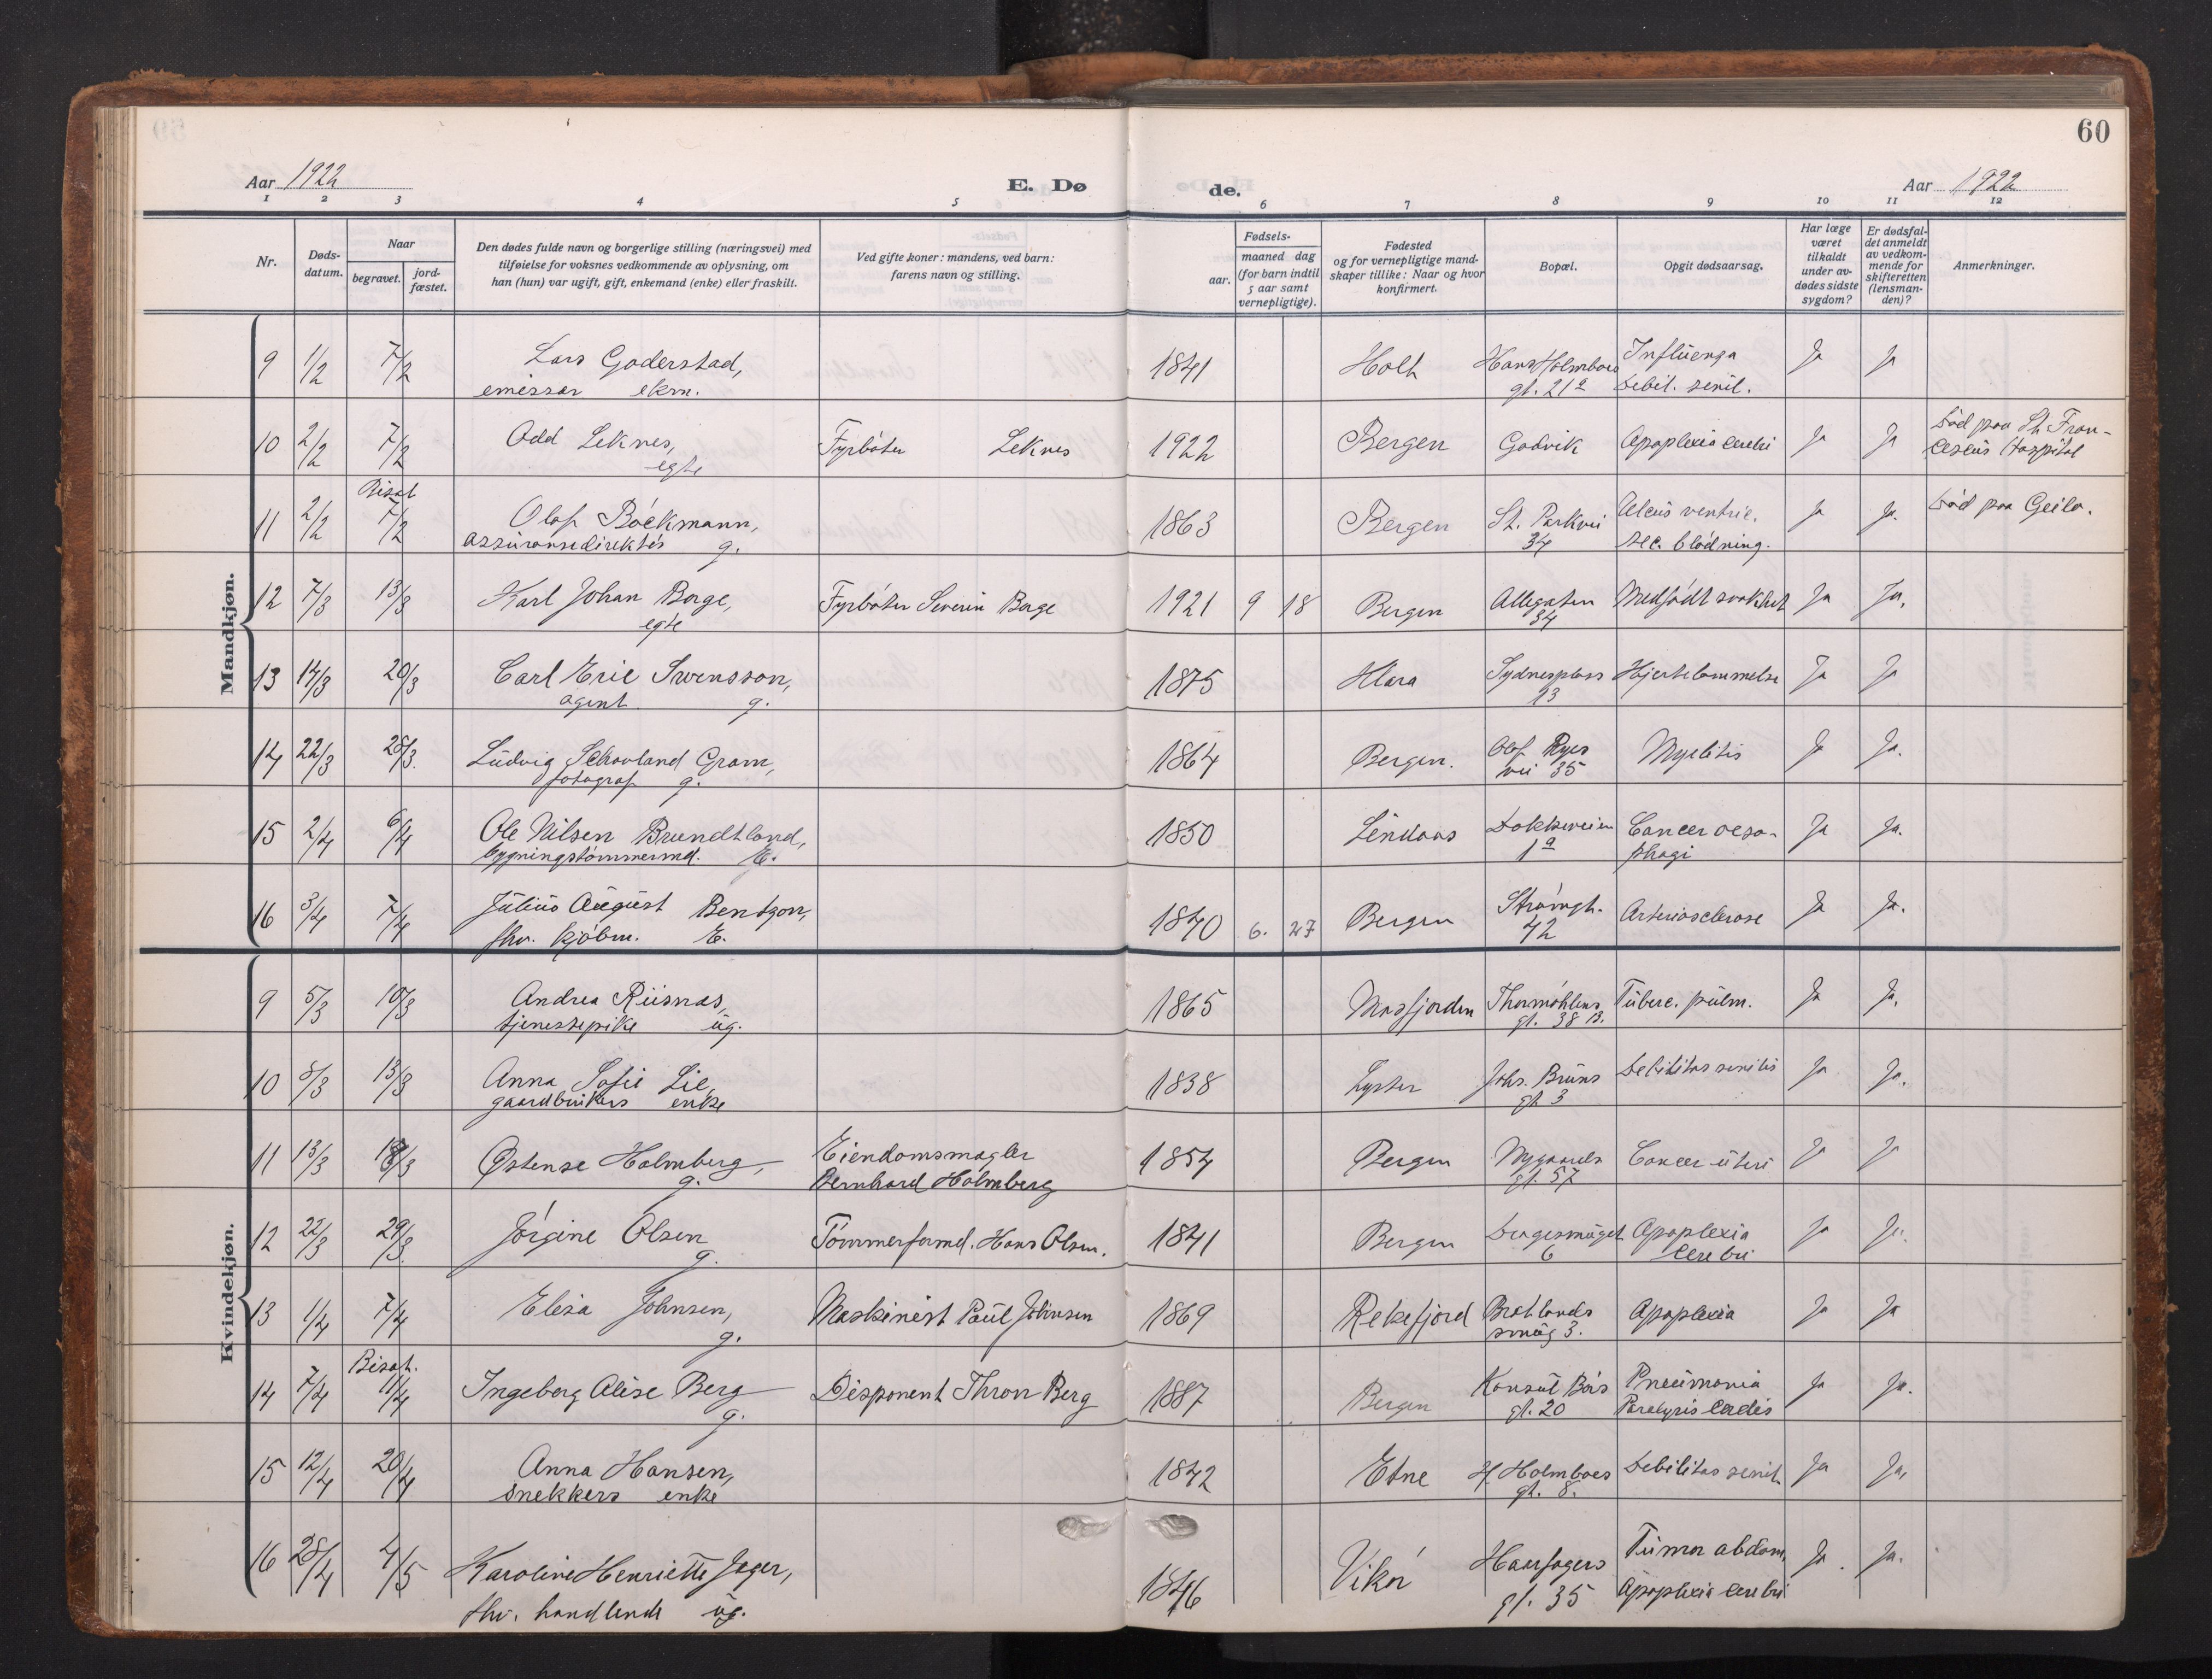 60
Aar 1922
E. Dø
de.
Aar 1922
1 2 3 4 5 6 7 8 9 10 11 12
Nr.
Døds-
datum.
Naar
begravet.
jord-
fæstet.
Den dødes fulde navn og borgerlige stilling (næringsvei) med
tilføielse for voksnes vedkommende av oplysning, om
han (hun) var ugift, gift, enkemand (enke) eller fraskilt.
Ved gifte koner: mandens, ved barn:
farens navn og stilling.
Fødsels-
aar.
maaned dag
(for barn indtil
5 aar samt
vernepligtige).
Fødested
og for vernepligtige mand-
skaper tillike: Naar og hvor
konfirmert.
Bopæl.
Opgit dødsaarsag.
Har læge
været
tilkaldt
under av-
dødes sidste
sygdom?
Er dødsfal-
det anmeldt
av vedkom-
mende for
skifteretten
(lensman-
den)?
Anmerkninger.
Mandkjøn.
9 1/2 7/2 Lars Goderstad, 1841 Holt Hans Holmboes Influenza Ja Ja
emissær ekm. gt. 21a Debil. senil.
10 2/2 7/2 Odd Leknes, Fyrbøter Leknes 1922 Bergen Godvik Apoplexia cerebri Ja Ja Død paa St. Fran-
egte ciscus Hospital
Bisat
11 2/2 7/2 Olaf Bøckmann, 1863 Bergen St. Parkvei Ulcus ventric. Ja Ja. Død paa Geilo.
assuransedirektør g. 34 sec. blødning.
12 7/3 13/3 Karl Johan Borge, Fyrbøter Severin Borge 1921 9 18 Bergen Allegaten Medfødt svakhet Ja Ja.
egte 34
13 14/3 20/3 Carl Eric Svensson, 1875 Sydnesplass Hjertelammelse Ja Ja
agent g. 13
14 22/3 28/3. Ludvig Schovland Gram, 1864 Bergen. Olaf Ryes Myelitis Ja Ja.
fotograf g. vei 35
15 2/4 6/4 Ole Nilsen Brundtland, 1850 Lindaas Dokkeveien Cancer oeso- Ja Ja.
bygningstømmermd. E. 1a phagi
16 3/4 7/4 Julius August Bentzon, 1840 6. 27 Bergen Strømgt. Arteriosclerose Ja Ja.
fhv. kjøbm. E. 42
Kvindekjøn.
9 5/3 10/3 Andrea Riisnæs, 1865 Masfjorden Thormøhlens Tuberc. pulm. Ja Ja.
tjenestepike ug. gt. 38 B.
10 8/3 13/3 Anna Sofie Lie, 1838 Lyster Johs. Bruns Debilitas senilis Ja Ja.
gaardbrukers enke gt 3
11 13/3 Østense Holmberg, Eiendomsmægler 1854 Bergen Nygaards Cancer uteri Ja Ja
g. Bernhard Holmberg gt. 57
12 22/3 29/3. Jørgine Olsen Tømmerformd. Hans Olsen. 1841 Bergen Dragesmuget Apoplexia Ja Ja.
g. 6 cerebri
13 1/4 7/4 Elisa Johnsen, Maskinist Paul Johnsen 1869 Rekefjord Bratlands Apoplexia Ja Ja
g. smug 3.
Bisat.
14 7/4 11/4 Ingeborg Alise Berg Disponent Thron Berg 1887 Bergen Konsul Børs Pneumonia Ja Ja.
g. gt. 20 Paralysis cordis
15 12/4 20/4 Anna Hansen, 1842 Etne H. Holmboes Debilitas senil. Ja Ja.
Snekkers enke gt. 8.
16 28/4 4/5 Karoline Henriette Jæger, 1846 Vikør Haarfagers Tumor abdom. Ja. Ja.
fhv. handlende ug. gt. 35 Apoplexia cerebri